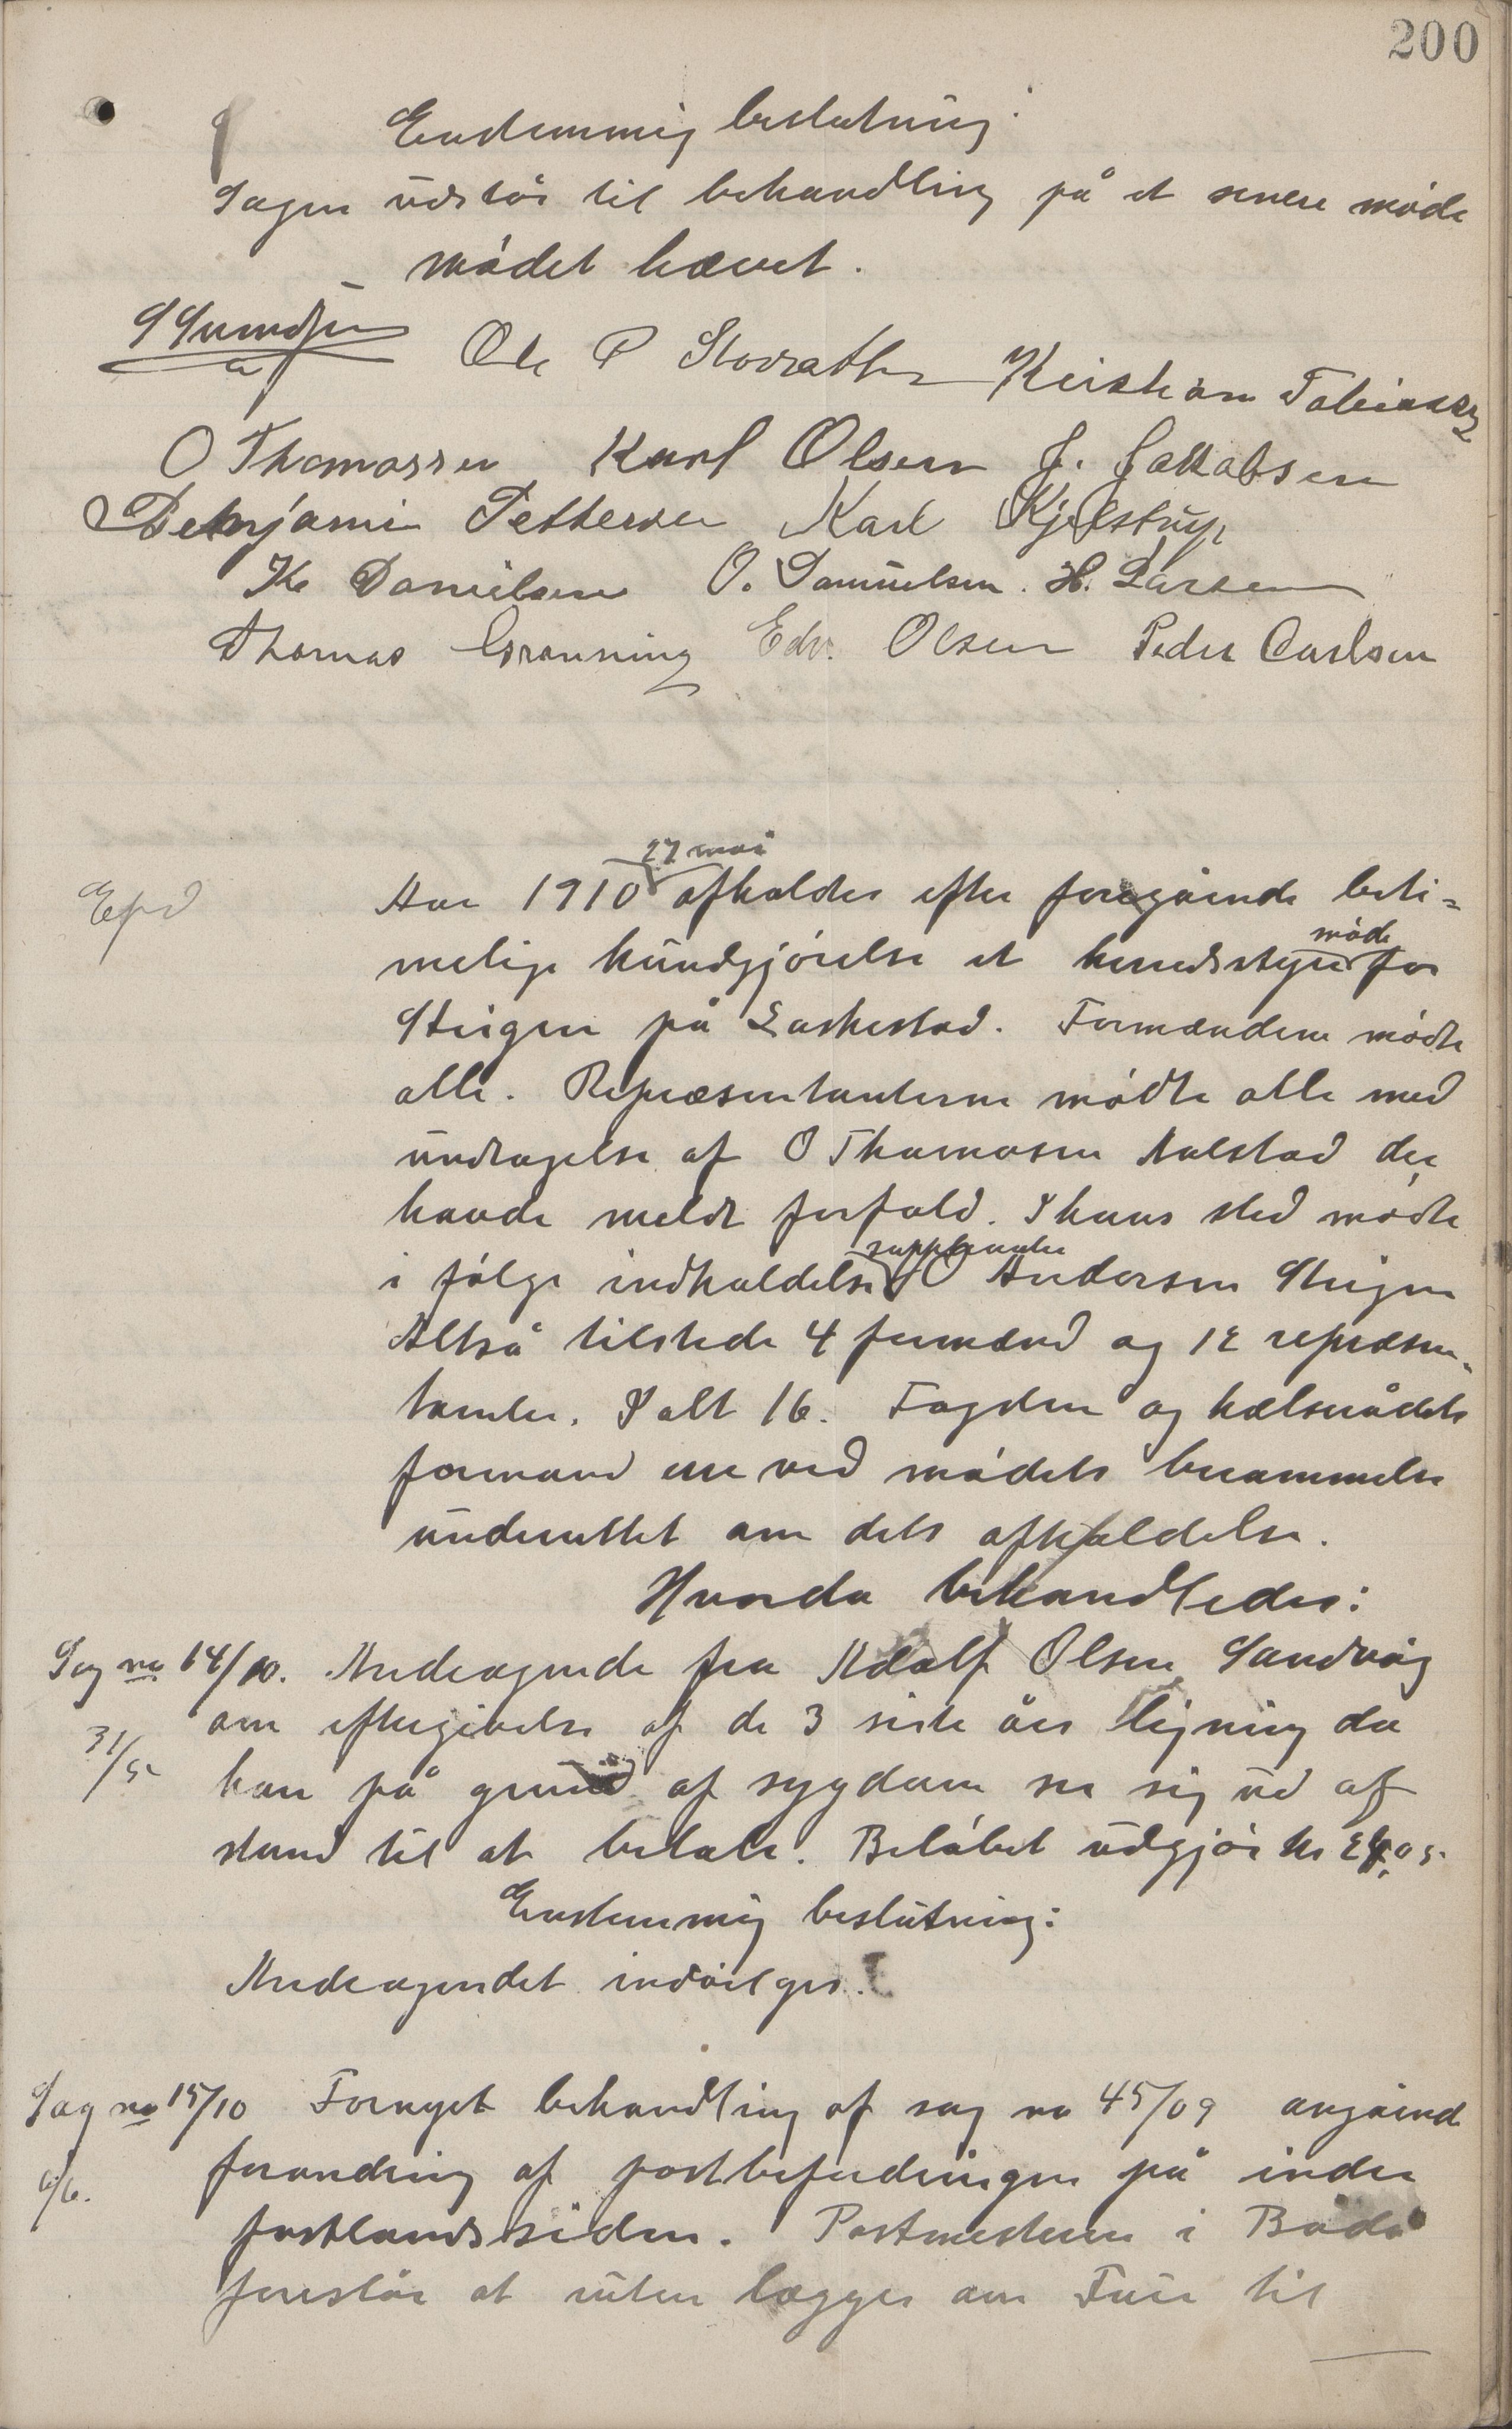 200
Enstemmig beslutning:
Sagen udstår til behandling på et senere møde
mødet hævet.
Ole P Storvathn Kristian Tobiassen
O Thomassen Karl Olsen J. Jakobsen
Benjamin Pettersen Karl Kjelstrup
K Danielsen O. Samuelsen. H. Larsen
Thomas Grønning Edv. Olsen Peder Carlsen
27 mai
Aar 1910 afholdes efter foregående beti=
møde
melige kundgjørelse et herredsstyre for
Steigen på Laskestad. Formændene mødte
alle. Repræsentanterne mødte alle med
undtagelse af O Thomassen Aalstad der
havde meldt forfald. I hans sted mødte
suppleanten
i følge indkaldelse O Andersen Steigen
Altså tilstede 4 formænd og 12 repræsen=
tanter. I alt 16. Fogden og helserådets
formand ere ved mødets berammelse
underrettet om dets afholdelse.
Hvorda behandledes:
Sag no 14/10. Andragende fra Adolf Olsen Sandvåg
31/5
om eftergivelse af de 3 siste års ligning da
han på grund af sygdom ser sig ud af
stand til at betale. Beløbet udgjør kr 24,05.
Enstemmig beslutning:
Andragendet indvilges.
Sag no 15/10 Fornyet behandling af sag no 45/09 angående
6/6.
forandring af postbefordringen på indre
fastlandssiden. Postmesteren i Bodø
foreslår at ruten lægges om Furu til